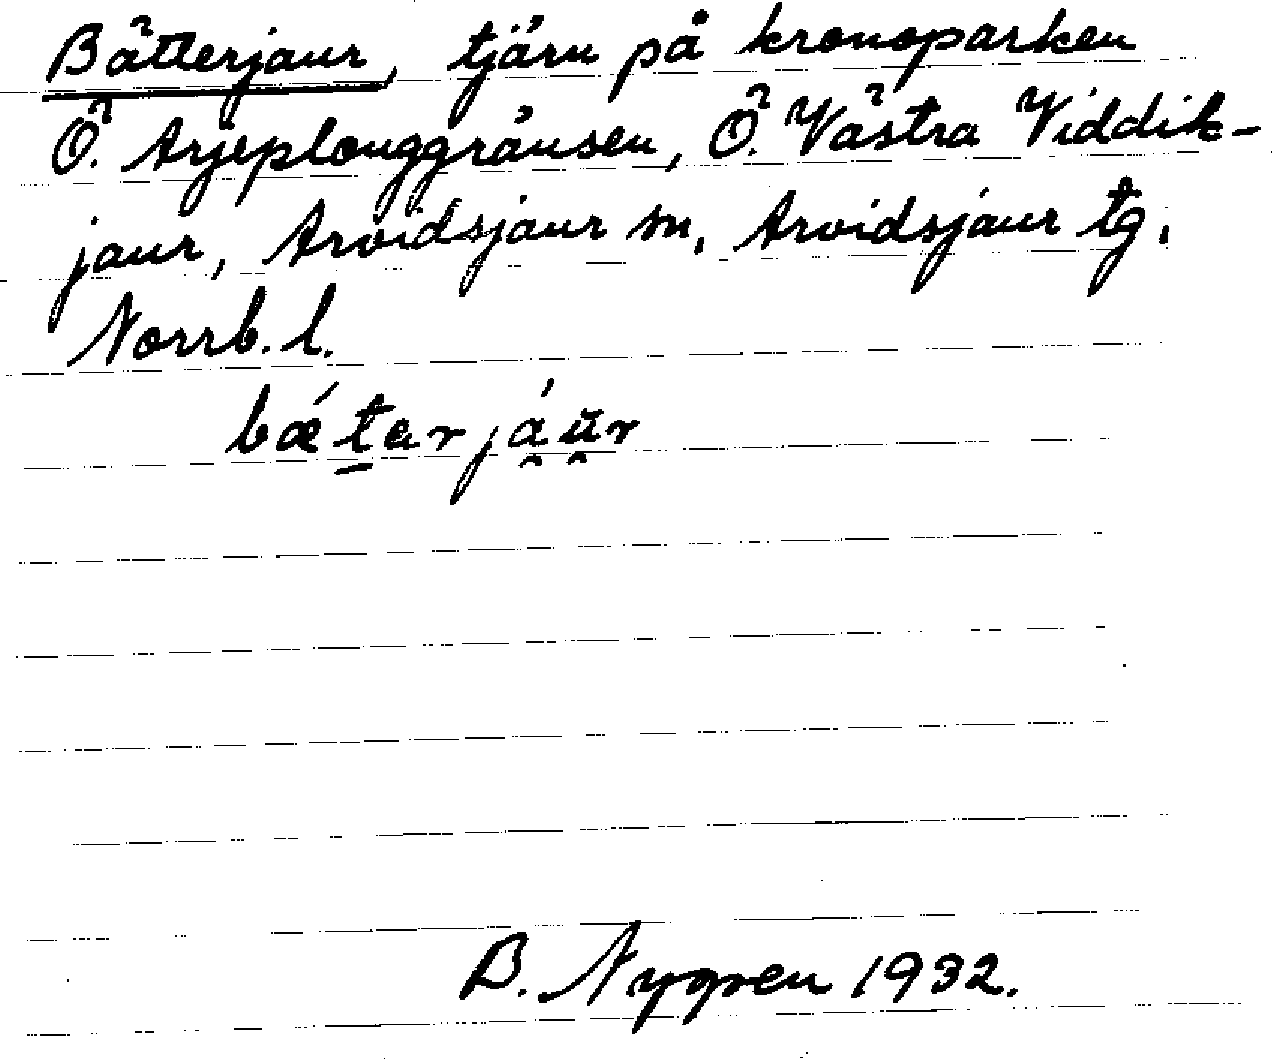 Bätterjaur, tjärn på kronoparken
Ö. Arjeplouggränsen, Ö. Västra Viddik-
jaur, Arvidsjaur sn, Arvidsjaur tg.
Norrb. l.
bǽt̲erjá̯ŭ̯r
B. Nygren 1932.